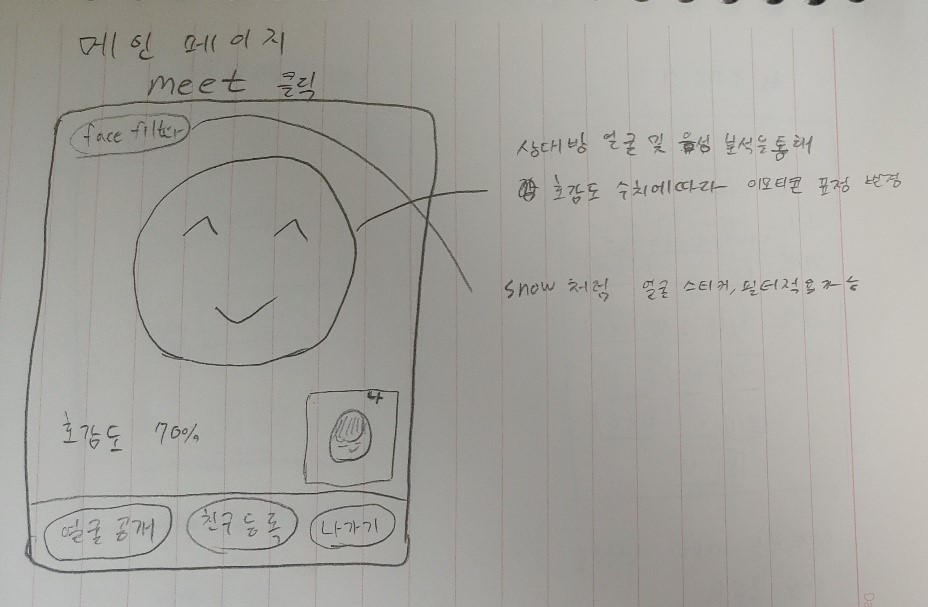 메인 페이지
meet 클릭
face filter
상대방 얼굴 및 음성 분석을 통해
호감도 수치에따라 이모티콘 표정 변경
snow 처럼 얼굴 스티커, 필터적용가능
나
호감도 70%
얼굴 공개
친구 등록
나가기